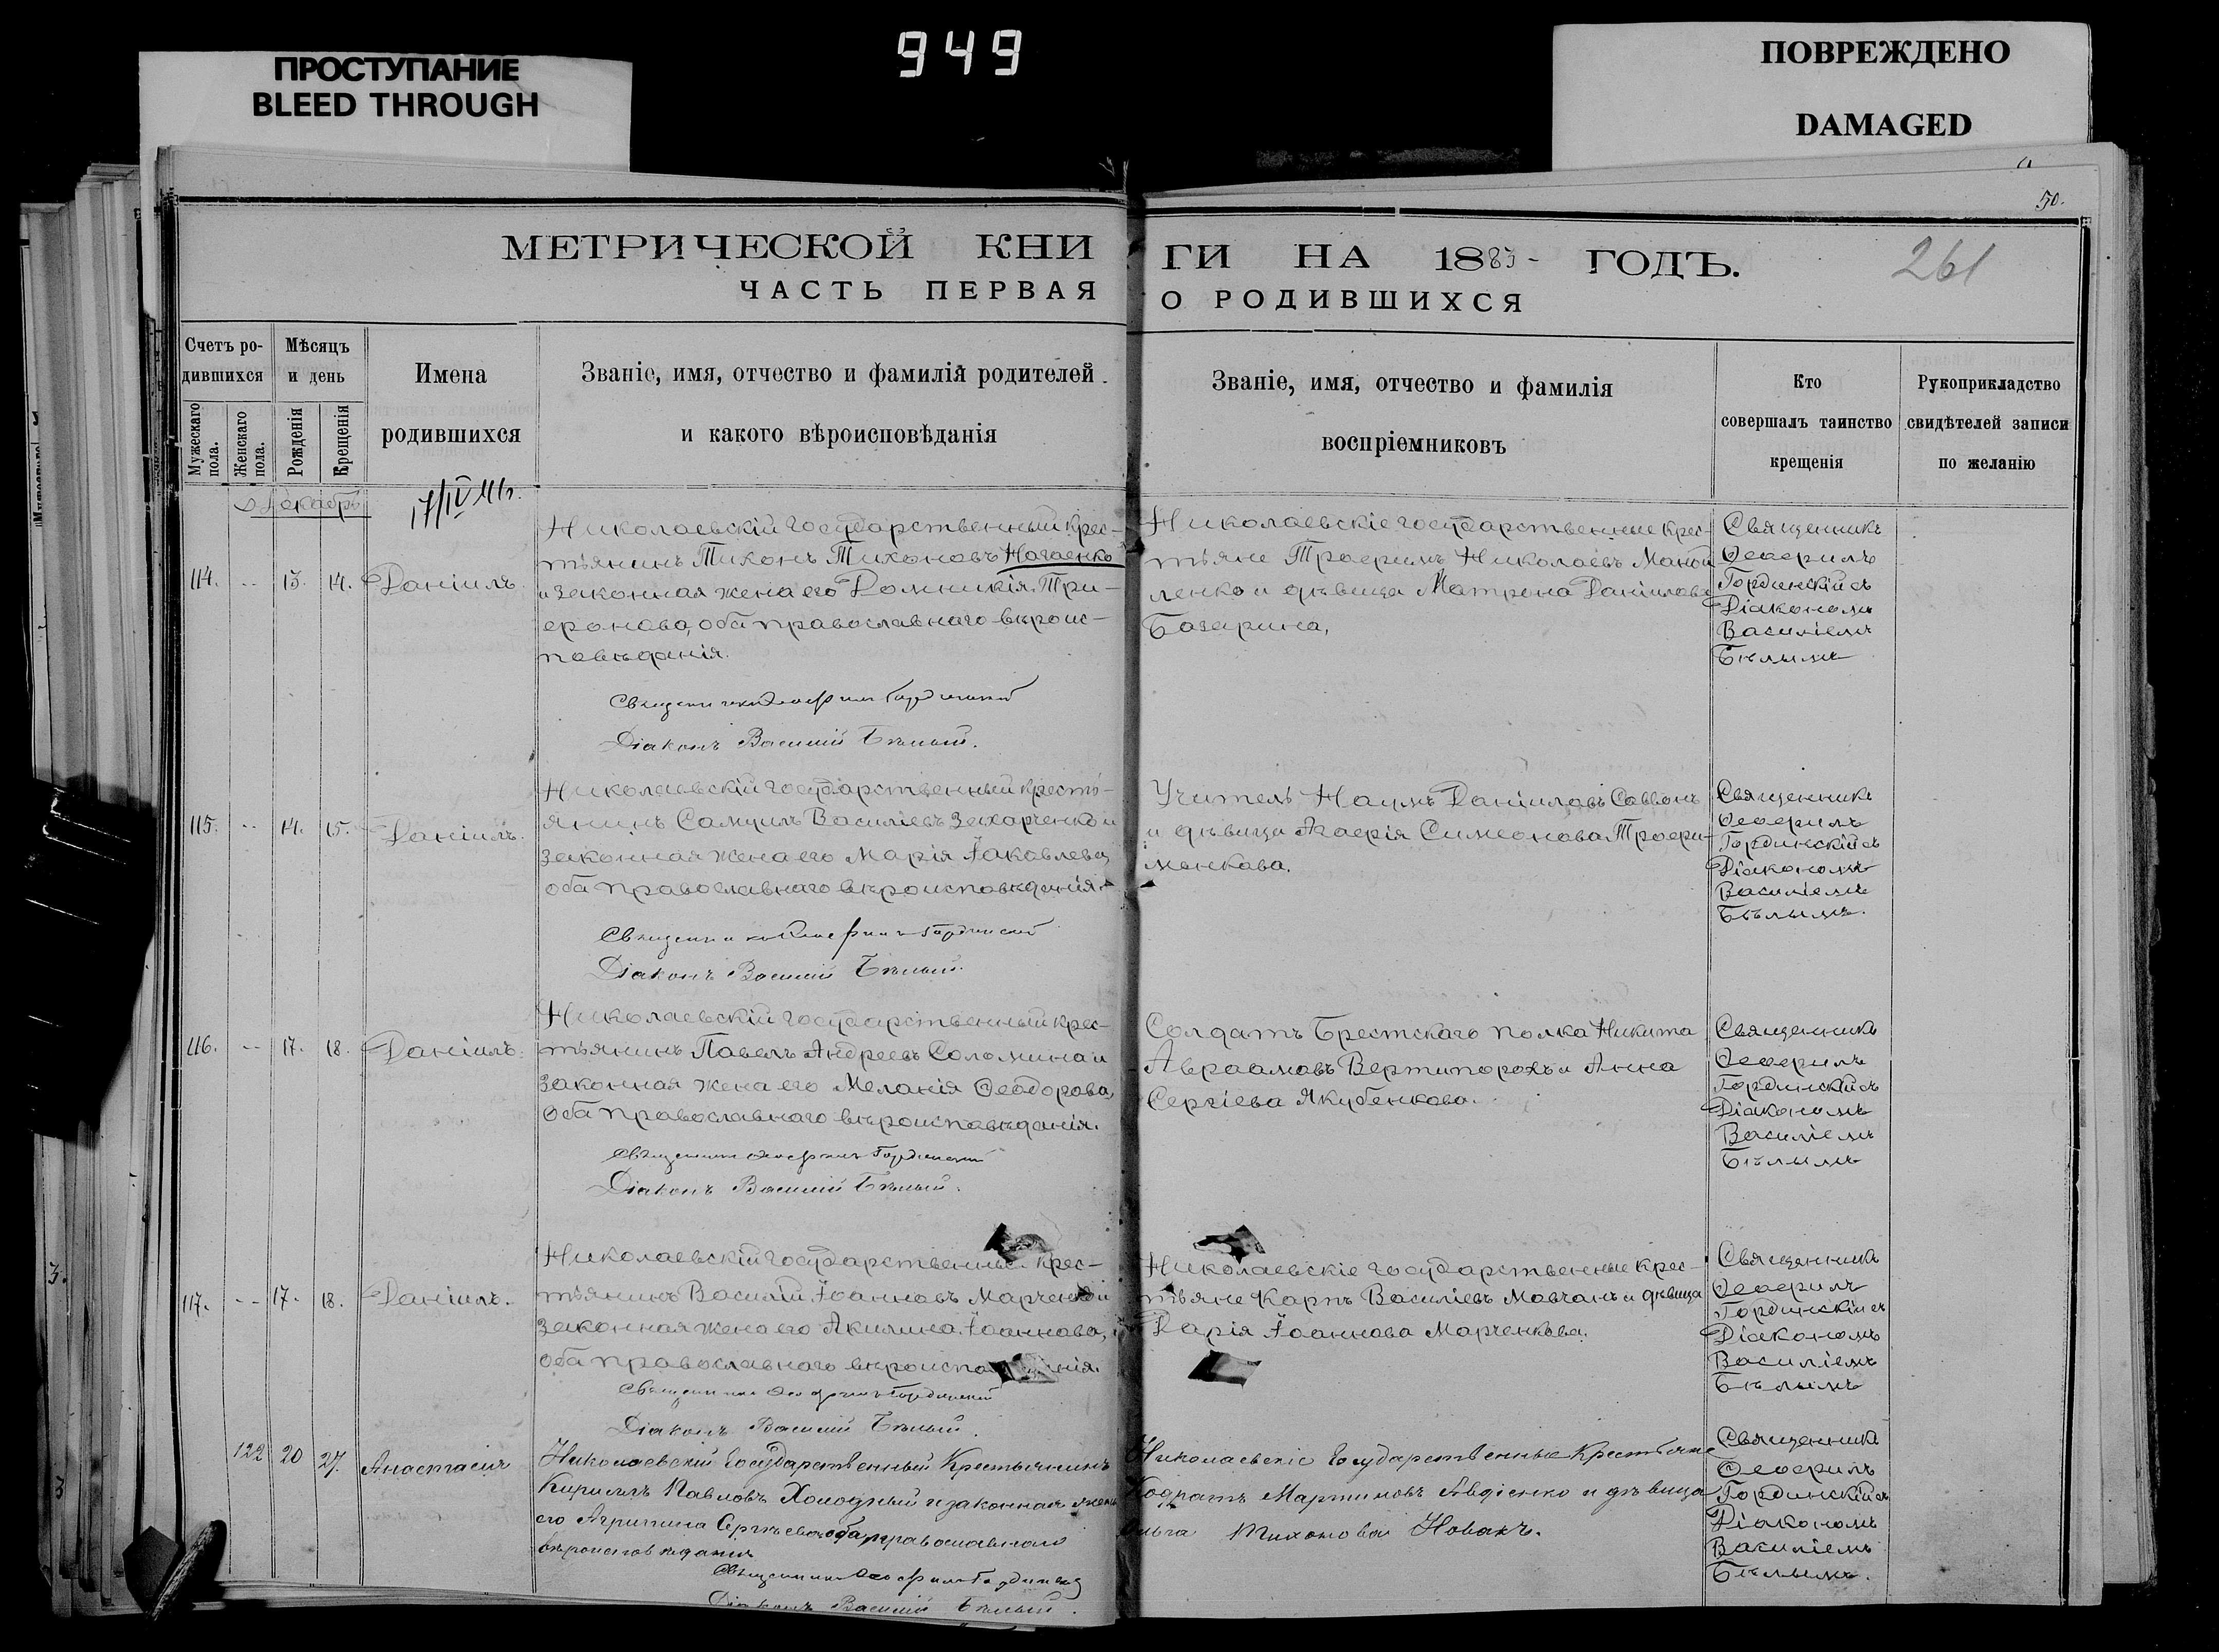 949
ПРОСТУПАНИЕ
BLEED THROUGH
ПОВРЕЖДЕНО
DAMAGED
50.
МЕТРИЧЕСКОЙ КНИ
ГИ НА 1883 ГОДЪ.
261
ЧАСТЬ ПЕРВАЯ
О РОДИВШИХСЯ
Счетъ ро-
дившихся
Мѣсяцъ
и день
Мужескаго
пола.
Женскаго
пола.
Рожденія
Крещенія
Имена
родившихся
Званіе, имя, отчество и фамилія родителей
и какого вѣроисповѣданія
Званіе, имя, отчество и фамилія
воспріемниковъ
Кто
совершалъ таинство
крещенія
Рукоприкладство
свидѣтелей записи
по желанію
Декабрь
114. -- 13. 14. Даніилъ.
Николаевскій государственный крес-
тьянинъ Тихонъ Тихоновъ Нагаенко
и законная жена его Домникія Три-
фонова, оба православнаго вѣроис-
повѣданія.
Священникъ Ѳеофилъ Гординскій
Діаконъ Василій Бѣлый.
Николаевскіе государственные крес-
тьяне Трофимъ Николаевъ Маной
ленко и дѣвица Матрона Даніилова
Священникъ
Ѳеофилъ
Гординскій съ
Діакономъ
Василіемъ
Бѣлымъ
115. -- 14. 15. Даніилъ.
Николаевскій государственный кресть-
янинъ Самуилъ Василіевъ Захарченко и
законная жена его Марія Іаковлева,
оба православнаго вѣроисповѣданія.
Священникъ Ѳеофилъ Гординскій
Діаконъ Василій Бѣлый.
Учитель Наумъ Даніиловъ Саввонъ
и дѣвица Агафія Симеонова Трофи-
менкова.
Священникъ
Ѳеофилъ
Гординскій съ
Діакономъ
Василіемъ
Бѣлымъ.
116. -- 17. 18. Даніилъ.
Николаевскій государственный крес-
тьянинъ Павелъ Андреевъ Соломина и
законная жена его Меланія Ѳеодорова,
оба православнаго вѣроисповѣданія.
Священникъ Ѳеофилъ Гординскій
Діаконъ Василій Бѣлый.
Солдатъ Брестскаго полка Никита
Авраамовъ Вертипорохъ и Анна
Сергіева Якубенкова.
Священникъ
Ѳеофилъ
Гординскій съ
Діакономъ
Василіемъ
Бѣлымъ
117. -- 17. 18. Даніилъ.
Николаевскій государственный крес-
тьянинъ Василій Іоанновъ Марченко и
законная жена его Акилина Іоаннова,
оба православнаго
Священникъ Ѳеофилъ Гординскій
Діаконъ Василій Бѣлый.
Николаевскіе государственные крес-
тьяне Карпъ Василіевъ Мовчанъ и дѣвица
Дарія Іоаннова Марченкова.
Священникъ
Ѳеофилъ
Гординскій съ
Діакономъ
Василіемъ
Бѣлымъ
122 20 27. Анастасія
Николаевскій Государственный Крестьянинъ
Кириллъ Павловъ Холодный и законная жена
его Агрипина Сергѣева оба православнаго
вѣроисповѣданія
Священникъ Ѳеофилъ Гординскій
Діаконъ Василій Бѣлый.
Николаевскіе Государственные Крестьяне
Кодратъ Мартиновъ Авдіенко и дѣвица
Тихонова Новакъ.
Священникъ
Ѳеофилъ
Гординскій съ
Діакономъ
Василіемъ
Бѣлымъ.